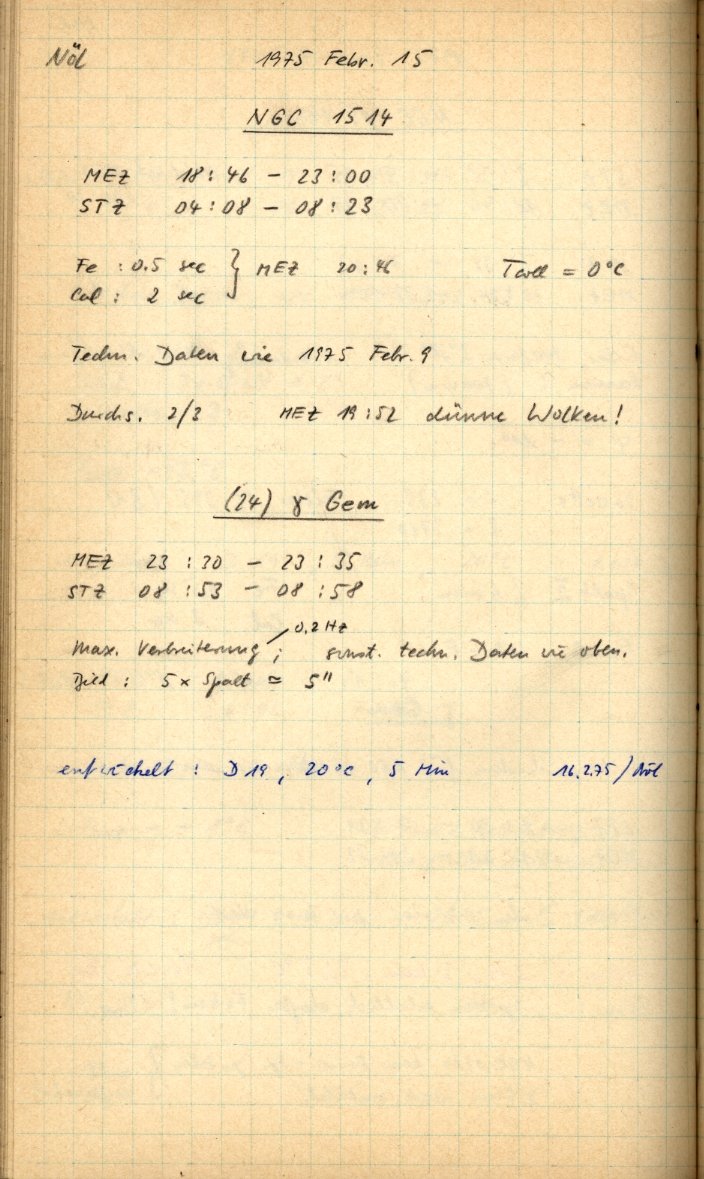 Nöl 1975 Febr. 15
NGC 1514
MEZ 18:46 - 23:00
STZ 04:08 - 08:23
Fe : 0.5 sec } MEZ 20:46 T = 0°C
Cal : 2 sec
Techn. Daten wie 1975 Febr. 9
Durchs. 2/3 MEZ 19:52 dünne Wolken!
(24) γ Gem
MEZ 23:30 - 23:35
STZ 08:53 - 08:58
0,2 Hz
Max. Verbreiterung ; sonst. techn. Daten wie oben.
Bild : 5 x Spalt ≃ 5"
entwickelt : D19, 20°C, 5 Min 16.2.75/Nöl